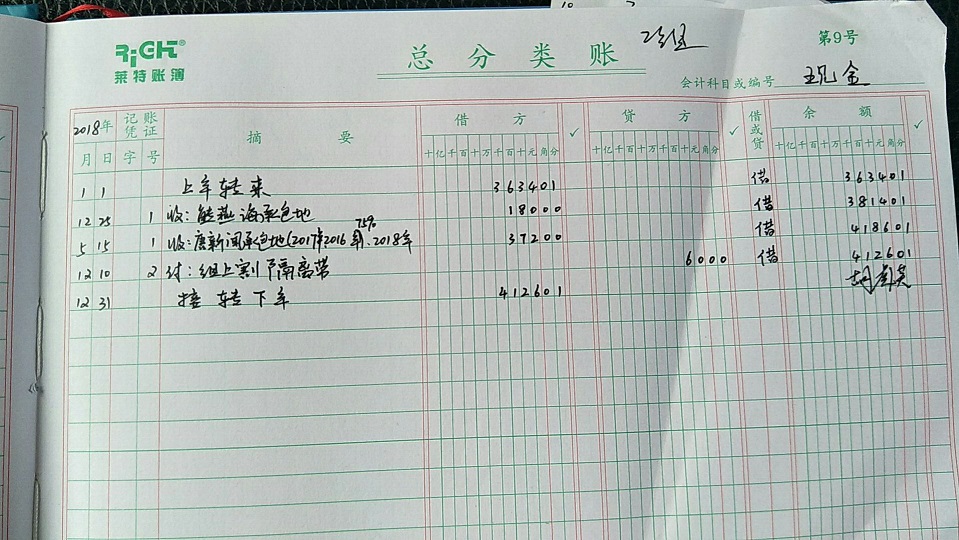 RiGHT®
莱特账簿
总分类账
第9号
会计科目或编号 现金
2018年 记账凭证 摘要 借方 ✓ 贷方 ✓ 借或贷 余额 ✓
月 日 字 号 十亿千百十万千百十元角分 十亿千百十万千百十元角分 十亿千百十万千百十元角分
1 1 上年转来 363401 借 363401
12 25 1 收:熊燕海承包地 18000 借 381401
75%
5 15 1 收:唐新闻承包地(2017年2016 2018年 37200 借 418601
12 10 2 付:组上割隔离带 6000 借 412601
12 31 结转下年 412601